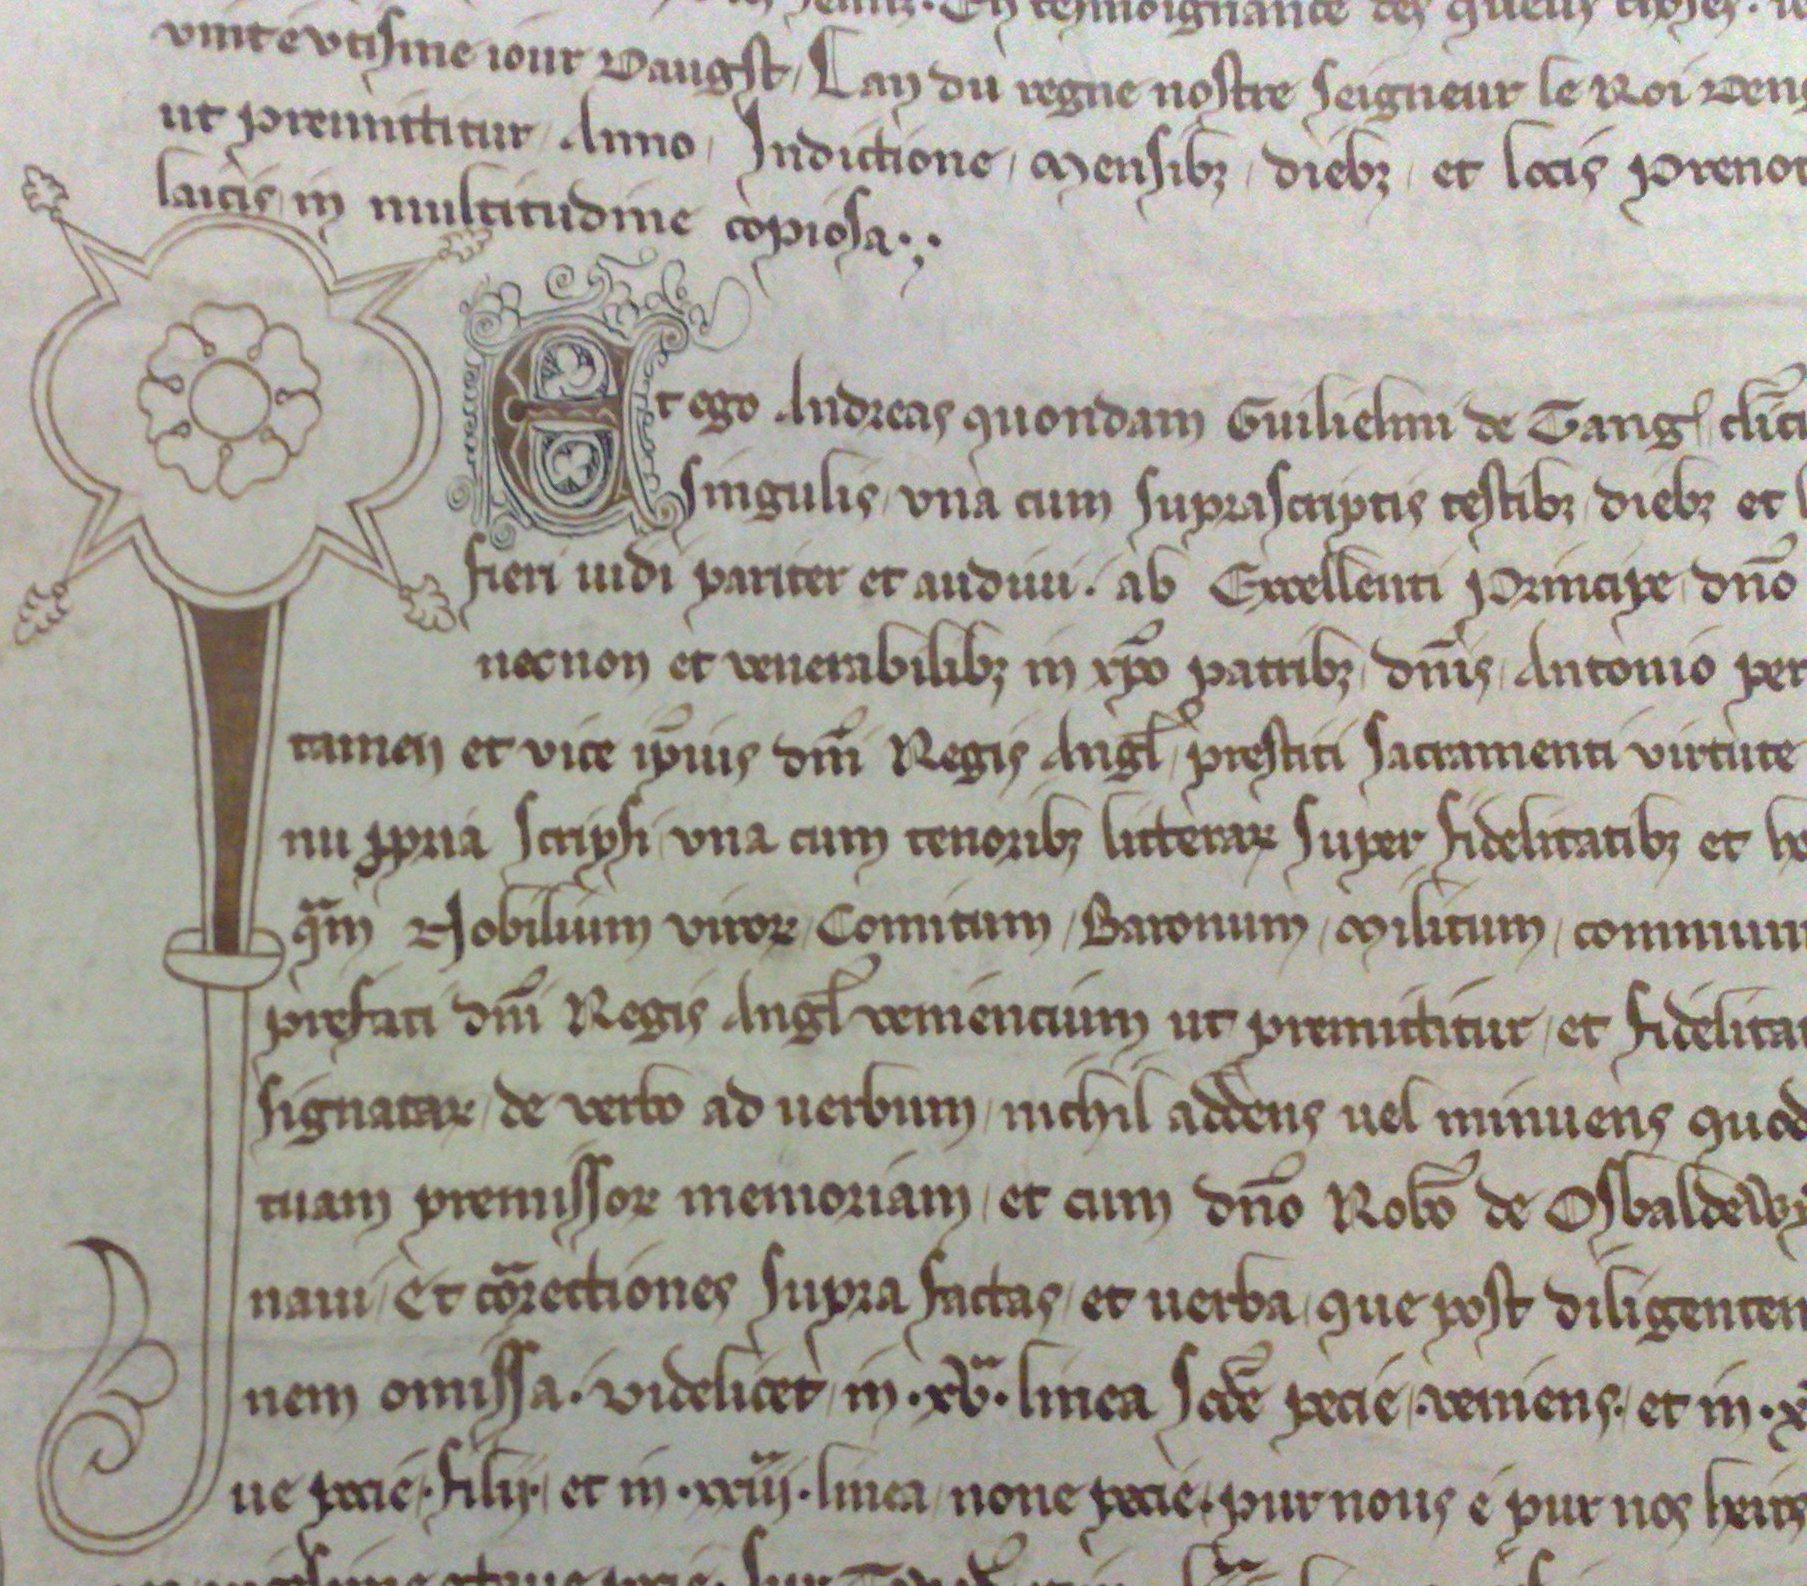 En tesmoignance des queus choses
vint e utisme iour Daugst / Lan du regne nostre Seigneur le Roi
ut premittitur / Anno / Indictione / Mensibꝫ / diebꝫ / et locis
laicis / in multitudine copiosa
Et ego Andreas quondam Guilielmi de Tangͥ
singulis / vna cum suprascriptis testibꝫ / diebꝫ et
fieri uidi pariter et audiui · ab Excellenti Principe / dn̄o
necnon et venerabilibꝫ in xp̄o patribꝫ / dn̄is / Antonio
tamen et vice ip̄ius dn̄i Regis Angl̄ / prestiti Sacramenti virtute
nu ꝓpria scripsi / vna cum tenoribꝫ litterarꝝ super fidelitatibꝫ et
qͣm Nobilium virorꝝ / Comitum / Baronum / Militum /
prefati dn̄i Regis Angl̄ veniencium ut premittitur / et
signatarꝝ / de verbo ad uerbum / nichil addens uel minuens
tuam premissorꝝ memoriam / et cum dn̄o Rob̄o de
naui / Et correctiones supra factas / et uerba / que post
nem omissa · videlicet / in · xv · linea Scd̄e pecie / · veniens · / et in ·
ue pecie · filij · / et in · xxiiij · linea / none pecie · pur nous e pur nos heirs